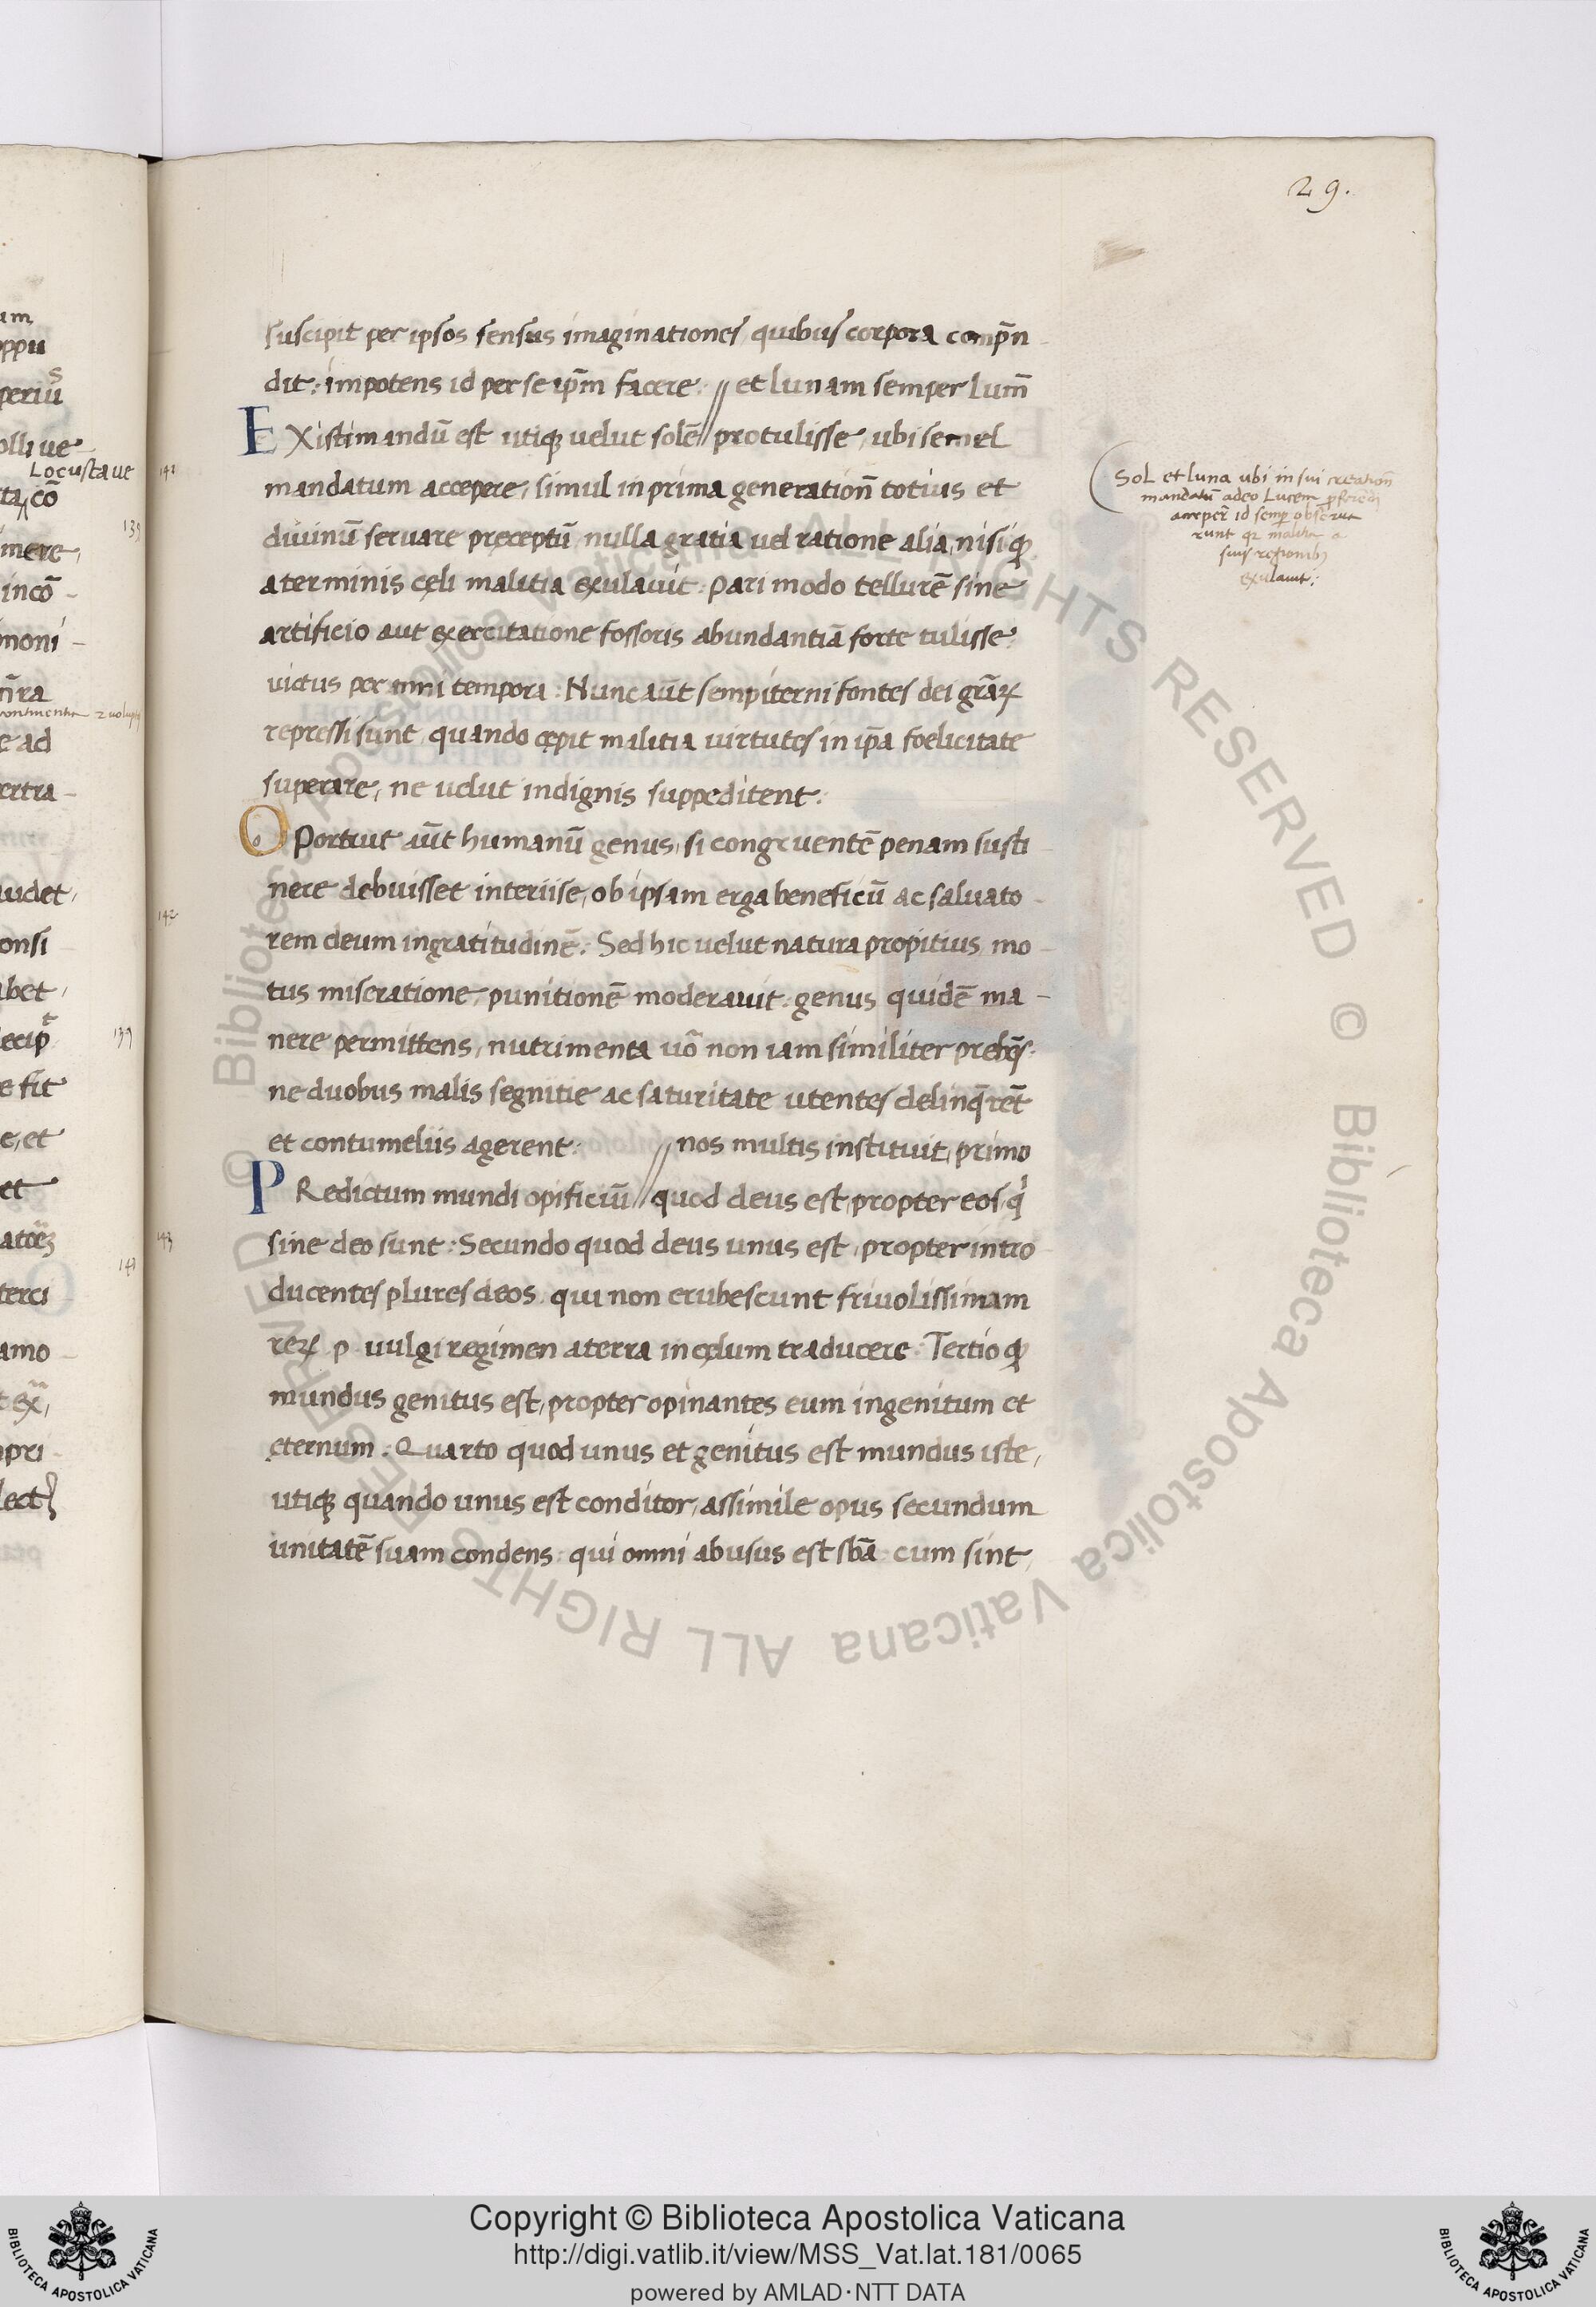 29.
suscipit per ipsos sensus imaginationes quibus corpora comp̄n
dit: impotens id per se ip̄m facere: // et lunam semper lum̄
EXistimandū est utiqꝫ velut solē // protulisse, ubi semel
mandatum accepere, simul in prima generation̄ totius et
diuinū seruare preceptū nulla gratia uel ratione alia, nisi qꝫ
a terminis cęli malitia exulauit: pari modo tellurē sine
artificio aut exercitatione fossoris abundantiā forte tulisse
uictus per omni tempora: Nunc aūt sempiterni fontes dei grāꝝ
repressi sunt, quando cępit malitia uirtutes in ip̄a foelicitate
superare, ne uelut indignis suppeditent:
OPortuit aūt humanū genus, si congruentē penam susti
nere debuisset interiise, ob ipsam erga beneficū ac saluato
rem deum ingratitudinē: Sed hic uelut natura propitius mo
tus miseratione, punitionē moderauit: genus quidē ma
nere permittens, nutrimenta uō non iam similiter prebēs:
ne duobus malis segnitie ac saturitate utentes delinq̄rēt
et contumeliis agerent: // nos multis instituit, primo
PRedictum mundi opificiū // quod deus est, propter eos, q'
sine deo sunt: Secundo quod deus unus est, propter intro
ducentes plures deos, qui non erubescunt friuolissimam
reꝝ p uulgi regimen a terra in cęlum traducere: Tertio qꝫ
mundus genitus est, propter opinantes eum ingenitum et
eternum: Quarto quod unus et genitus est mundus iste,
utiqꝫ quando unus est conditor, assimile opus secundum
unitatē suam condens: qui omni abusus est sbā: cum sint,
Sol et luna ubi in sui creation̄
mandatū a deo Lucem
acceper̄ id semp̄ obserua
runt qꝫ malitia a
suis
exulauit:
141
142
143
Copyright © Biblioteca Apostolica Vaticana
http://digi.vatlib.it/view/MSS_Vat.lat.181/0065
powered by AMLAD·NTT DATA